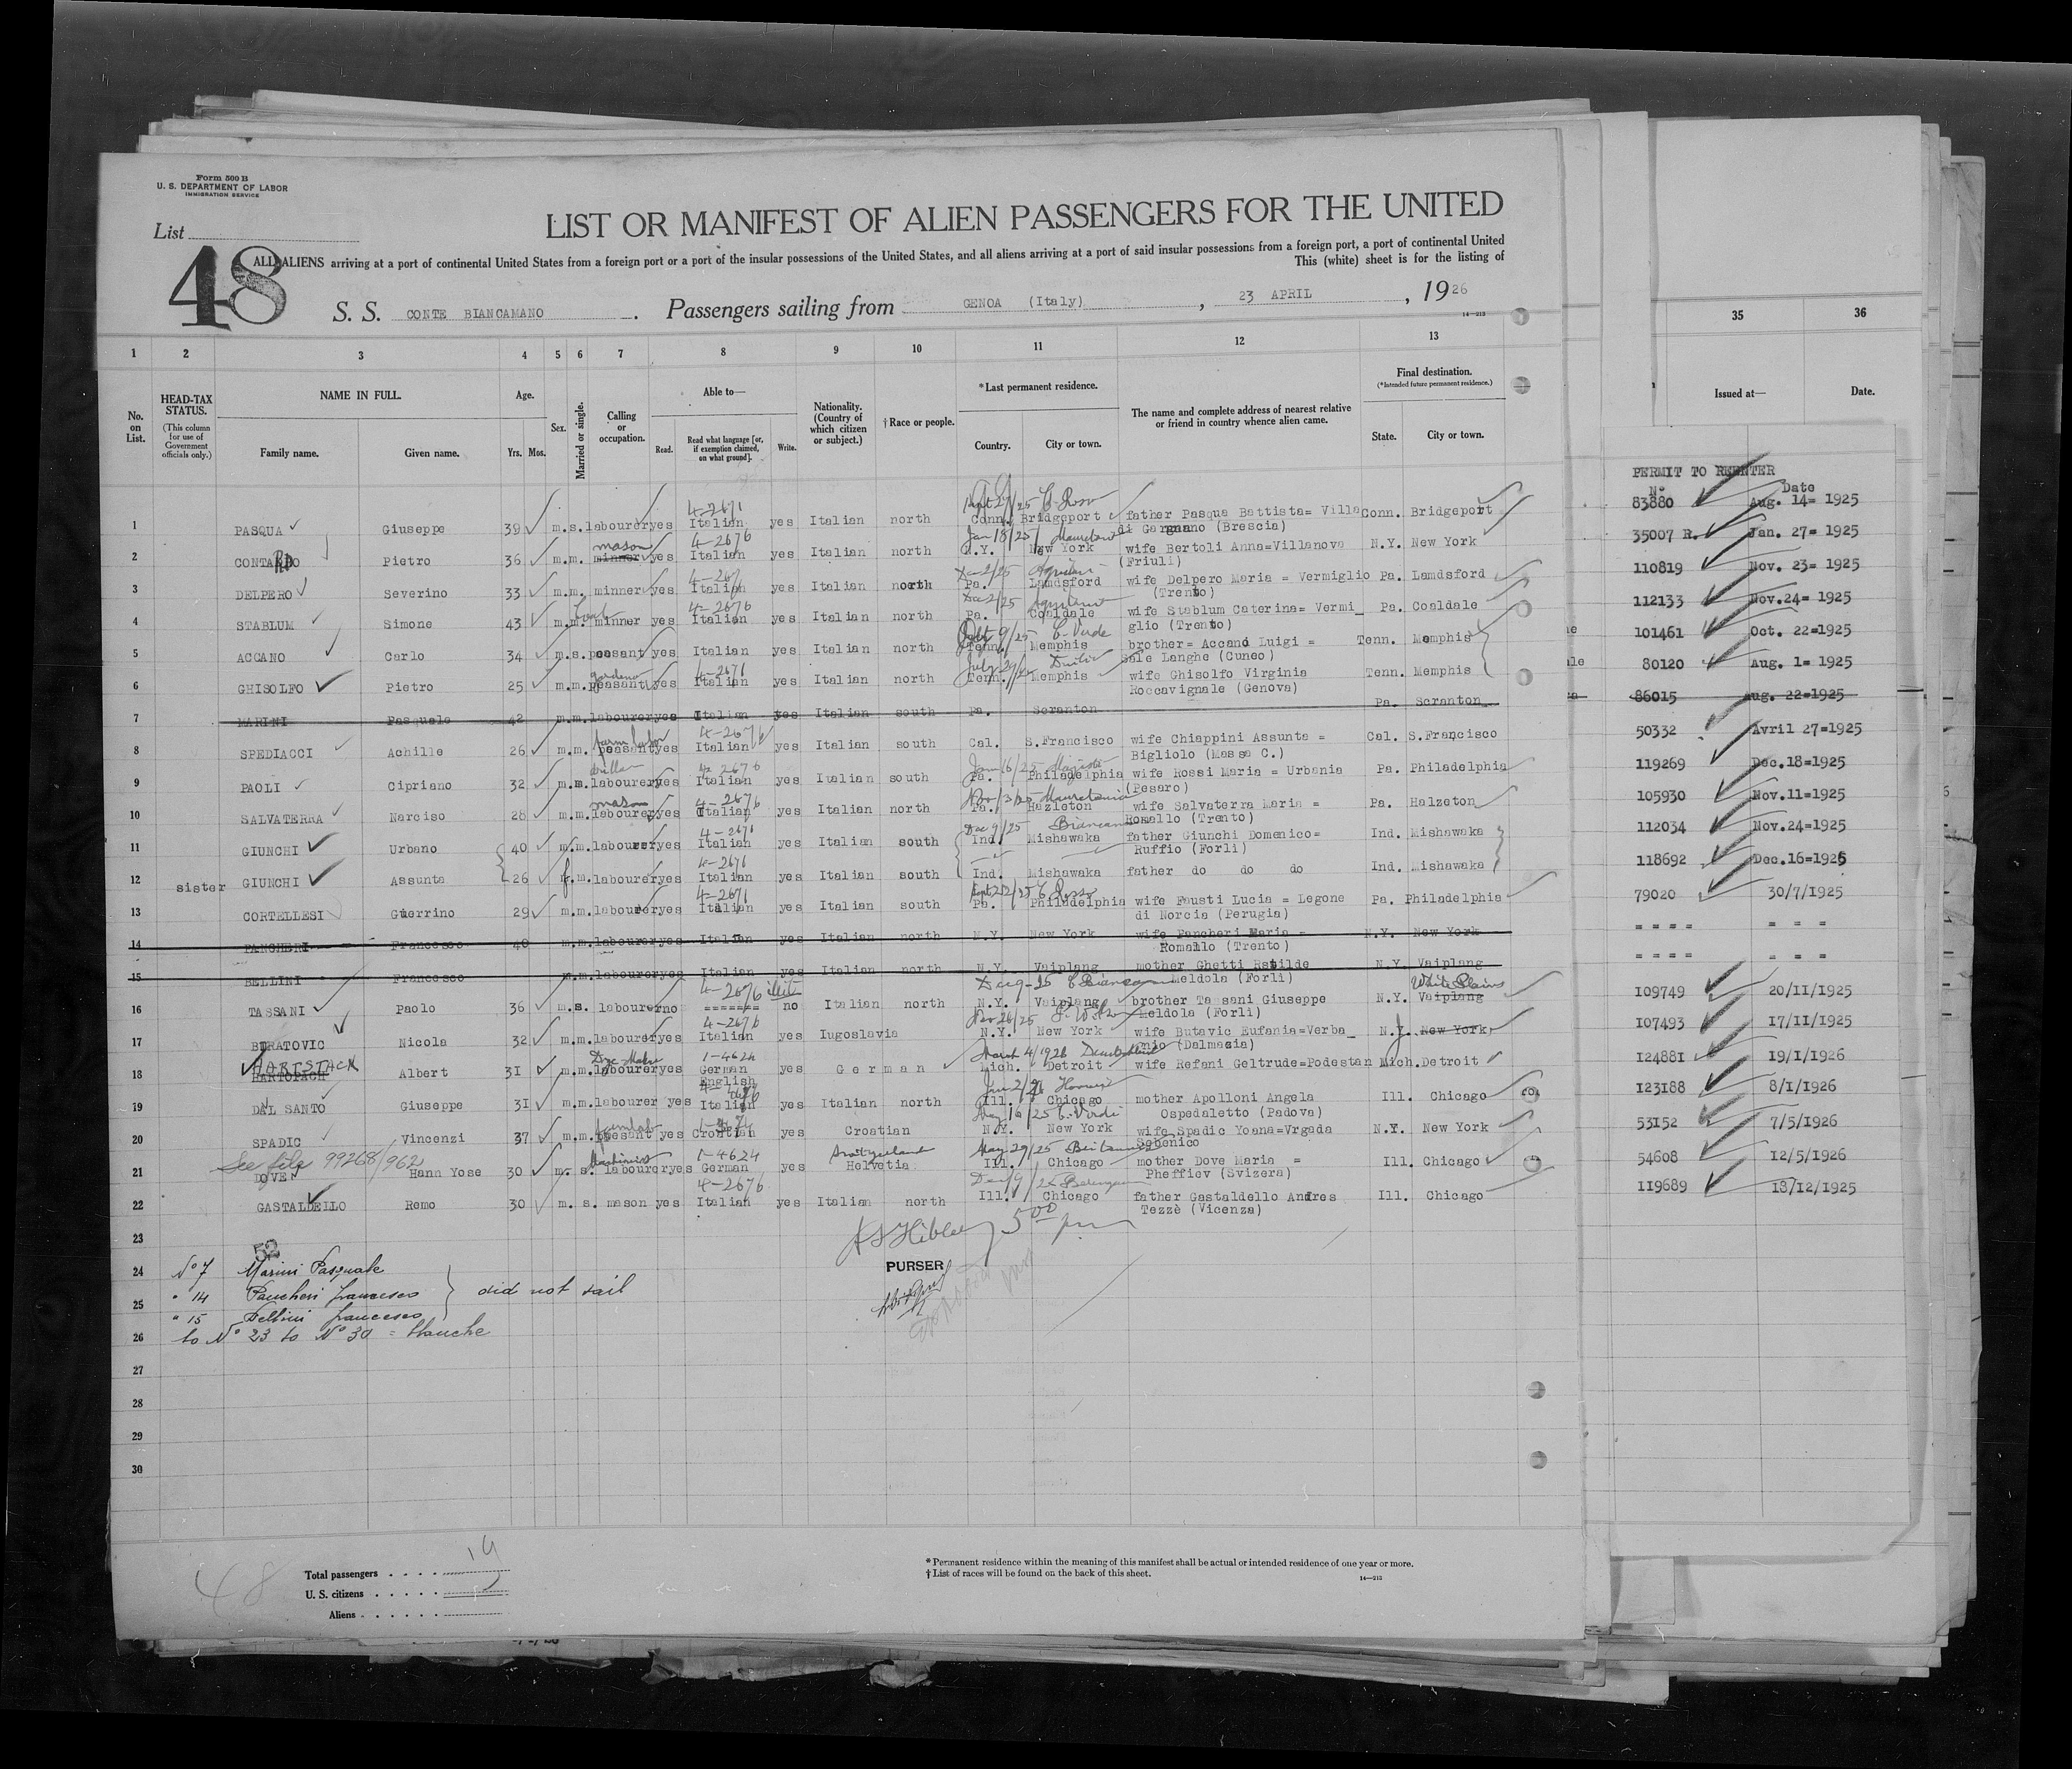 Form 500 B
U. S. DEPARTMENT OF LABOR
IMMIGRATION SERVICE
List
48
LIST OR MANIFEST OF ALIEN PASSENGERS FOR THE UNITED
ALL ALIENS arriving at a port of continental United States from a foreign port or a port of the insular possessions of the United States, and all aliens arriving at a port of said insular possessions from a foreign port, a port of continental United
This (white) sheet is for the listing of
S. S. CONTE BIANCAMANO . Passengers sailing from GENOA (Italy) , 23 APRIL , 1926
14—213
1 2 3 4 5 6 7 8 9 10 11 12 13 35 36
HEAD-TAX STATUS. (This column for use of Government officials only.)
No. on List. NAME IN FULL. Family name. Given name. Age. Yrs. Mos. Sex. Married or single. Calling or occupation. Able to— Read. Read what language [or, if exemption claimed, on what ground]. Write. Nationality. (Country of which citizen or subject.) † Race or people. *Last permanent residence. Country. City or town. The name and complete address of nearest relative or friend in country whence alien came. Final destination. (*Intended future permanent residence.) State. City or town. Issued at— Date.
PERMIT TO REENTER
No Date
4-2671 Sept 27/25 C. Rosso
1 PASQUA Giuseppe 39 m. s. labourer yes Italian yes Italian north Conn. Bridgeport father Pasqua Battista= Villa Conn. Bridgeport 83880 Aug. 14= 1925
di Gargnano (Brescia)
mason 4-2676 Jan 18/25
2 CONTARDO Pietro 36 m. m. minner yes Italian yes Italian north N.Y. New York wife Bertoli Anna=Villanova N.Y. New York 35007 R. Jan. 27= 1925
(Friuli)
3 DELPERO Severino 33 m. m. minner yes Italian yes Italian north Pa. Lamdsford wife Delpero Maria = Vermiglio Pa. Lamdsford 110819 Nov. 23= 1925
(Trento)
4-2676 Dec 2/25
4 STABLUM Simone 43 m. m. minner yes Italian yes Italian north Pa. Coaldale wife Stablum Caterina= Vermi_ Pa. Coaldale 112133 Nov.24= 1925
glio (Trento)
C. Verde
5 ACCANO Carlo 34 m. s. peasant yes Italian yes Italian north Tenn. Memphis brother= Accanó Luigi = Tenn. Memphis 101461 Oct. 22=1925
Sale Langhe (Cuneo)
gardener 4-2671 Duilio
6 GHISOLFO Pietro 25 m. m. peasant yes Italian yes Italian north Tenn. Memphis wife Ghisolfo Virginia Tenn. Memphis 80120 Aug. 1= 1925
Roccavignale (Genova)
7 MARINI Pasquale 42 m. m. labourer yes Italian yes Italian south Pa. Scranton Pa. Scranton 86015 Aug. 22=1925
farm labor 4-2676
8 SPEDIACCI Achille 26 m. m. peasant yes Italian yes Italian south Cal. S.Francisco wife Chiappini Assunta = Cal. S.Francisco 50332 Avril 27=1925
Bigliolo (Massa C.)
driller 4-2676 Jan 16/25 Majestic
9 PAOLI Cipriano 32 m. m. labourer yes Italian yes Italian south Pa. Philadelphia wife Rossi Maria = Urbania Pa. Philadelphia 119269 Dec.18=1925
(Pesaro)
mason 4-2676 Mauretania
10 SALVATERRA Narciso 28 m. m. labourer yes Italian yes Italian north Pa. Hazleton wife Salvaterra Maria = Pa. Halzeton 105930 Nov.11=1925
Romallo (Trento)
4-2671 Dec 9/25
11 GIUNCHI Urbano 40 m. m. labourer yes Italian yes Italian south Ind. Mishawaka father Giunchi Domenico= Ind. Mishawaka 112034 Nov.24=1925
Ruffio (Forli)
4-2671
12 sister GIUNCHI Assunta 26 f. m. labourer yes Italian yes Italian south Ind. Mishawaka father do do do Ind. Mishawaka 118692 Dec.16=1925
4-2671 C. Rosso
13 CORTELLESI Guerrino 29 m. m. labourer yes Italian yes Italian south Pa. Philadelphia wife Fausti Lucia = Legone Pa. Philadelphia 79020 30/7/1925
di Norcia (Perugia)
14 PANCHERI Francesco 40 m. m. labourer yes Italian yes Italian north N.Y. New York wife Pancheri Maria = N.Y. New York = = = = = = =
Romallo (Trento)
15 BELLINI Francesco m. m. labourer yes Italian yes Italian north N.Y. Vaiplang mother Ghetti Rotilde N.Y. Vaiplang = = = = = = =
Meldola (Forli)
4-2676 Dec 9-25 White Plains
16 TASSANI Paolo 36 m. s. labourer no ======= no Italian north N.Y. Vaiplang brother Tassani Giuseppe N.Y. Vaiplang 109749 20/11/1925
Meldola (Forli)
4-2676 Nov 26/25
17 BURATOVIC Nicola 32 m. m. labourer yes Italian yes Iugoslavia N.Y. New York wife Butavic Eufania=Verba_ N.Y. New York 107493 17/11/1925
nio (Dalmazia)
HARTSTACK 1-4624 March 4/1926 Deutschland
18 HARTOPACH Albert 31 m. m. labourer yes German yes German Mich. Detroit wife Refani Geltrude=Podestan Mich. Detroit 124881 19/1/1926
English
19 DAL SANTO Giuseppe 31 m. m. labourer yes Italian yes Italian north Ill. Chicago mother Apolloni Angela Ill. Chicago 123188 8/1/1926
Ospedaletto (Padova)
20 SPADIC Vincenzi 37 m. m. peasant yes Croatian yes Croatian N.Y. New York wife Spadic Yoana=Vrgada N.Y. New York 53152 7/5/1926
Sebenico
See file 99268/962 Machinist 1-4624 Switzerland May 29/25
21 DOVER Hann Yose 30 m. s. labourer yes German yes Helvetia Ill. Chicago mother Dove Maria = Ill. Chicago 54608 12/5/1926
Pheffiev (Svizera)
4-2676
22 GASTALDELLO Remo 30 m. s. mason yes Italian yes Italian north Ill. Chicago father Gastaldello Andres Ill. Chicago 119689 18/12/1925
Tezzè (Vicenza)
23 5 00 pm
52
24 No 7 Marini Pasquale PURSER
25 " 14 Pancheri francesco did not sail
" 15 Bellini francesco
26 to No 23 to No 30 = blanche
27
28
29
30
48
Total passengers . . . . 19
U. S. citizens . . . . .
Aliens . . . . . .
* Permanent residence within the meaning of this manifest shall be actual or intended residence of one year or more.
† List of races will be found on the back of this sheet.
14—213